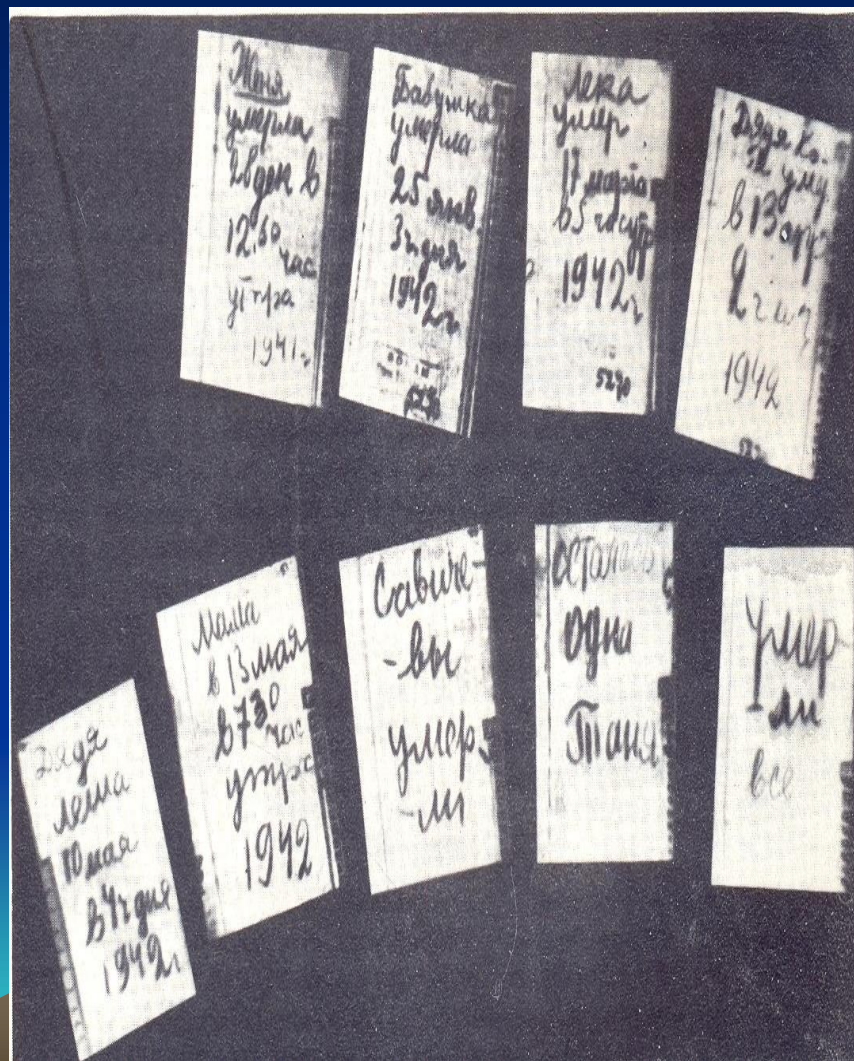 Женя
умерла
28 дек в
12.30
час
утра
1941 г
Бабушка
умерла
25 янв.
3 ч дня
1942 г.
5270
Лека
умер
17 марта
в 5 час утр
1942 г.
5270
Дядя
в 13 апр
2 ч
1942
Дядя
Леша
10 мая
в 4 ч дня
1942 г
Мама
в 13 мая
в 730
час
утра
1942
Савиче-
-вы
умер-
-ли
осталась
одна
Таня
Умер-
-ли
все